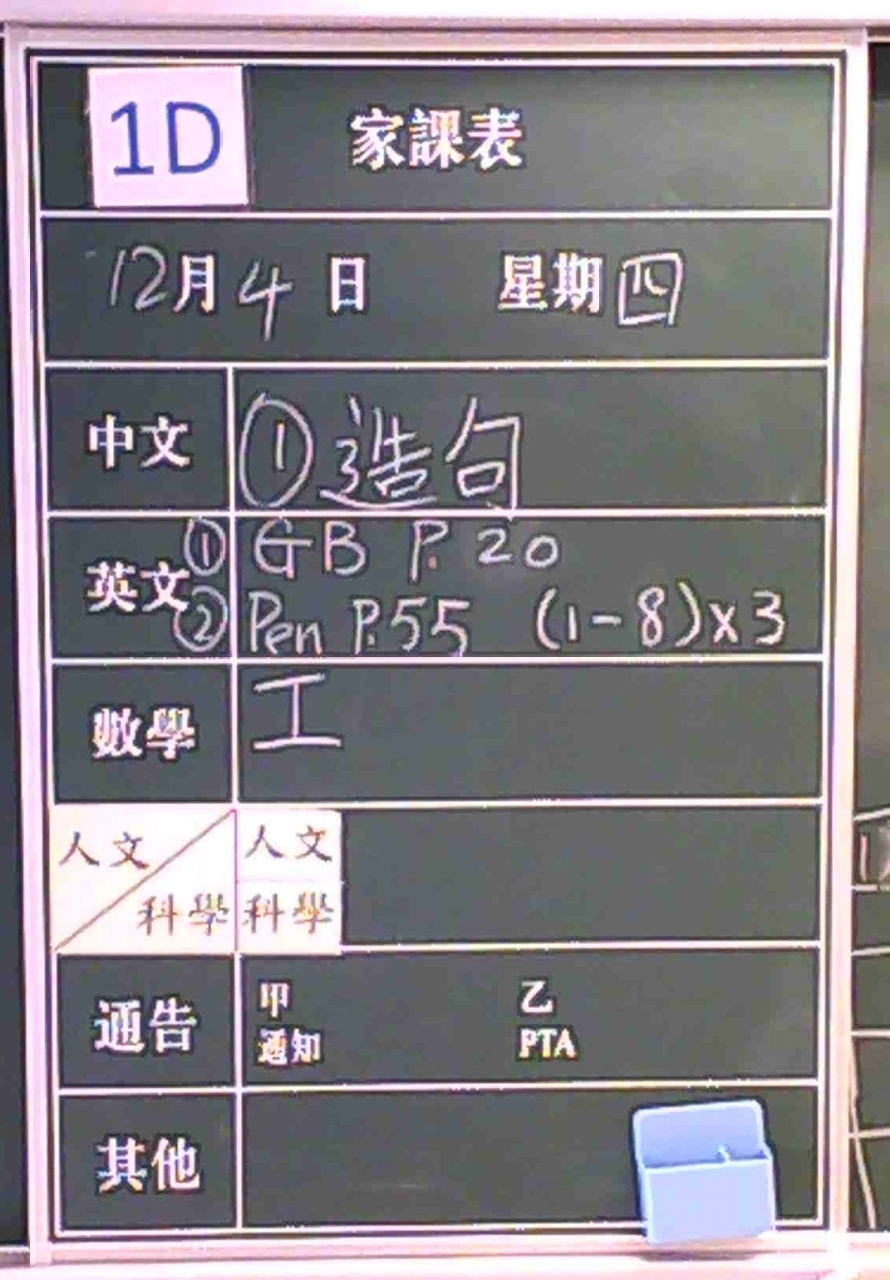 1D 家課表
12月4日 星期四
中文 ①造句
英文 ① GB P. 20
② Pen P.55 (1-8)x3
數學 工
人文 人文
科學 科學
通告 甲 乙
通知 PTA
其他